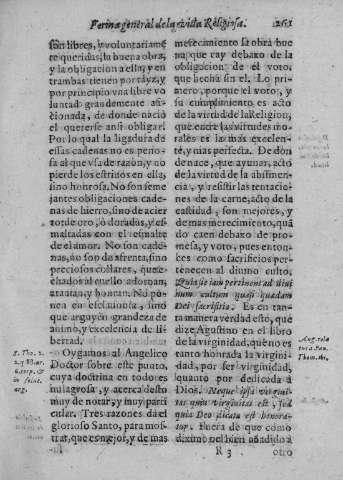 Forma general de la vista Religiosa. 261
son libres, y voluntariamẽ
te queridas, la buena obra,
y la obligacion a ella, y en
trambas tienen por rayz, y
por principio vna libre vo
luntad grandemente afi-
cionada, de donde nació
el quererse ansi obligar.
Por lo qual la ligadura de
essas cadenas no es peno-
sa al que vsa de razon, y no
pierde los estrinos en ella,
sino honrosa. No son seme
jantes obligaciones cade-
nas de hierro, sino de azier
tos de oro, ò dorados, y es-
maltadas con el esmalte
de el amor. No son cade-
nas, no sop de afrenta, sino
preciosos collares, que e-
chados al cuello adornan,
atauian, y honran. No po-
nen en esclauonia, sino
que arguyen grandeza de
animo, y excelencia de li-
bertad.
Oygamos al Angelico
Doctor sobre este punto,
cuya doctrina en todo es
milagrosa, y acerca desto
muy de notar, y muy parti
cular. Tres razones dà el
glorioso Santo, para mos-
trar, que es mejor, y de mas
merecimiento la obra bue
na, que cay debaxo de la
obligacion de el voto,
que hecha sin el. Lo pri-
mero, porque el voto, y
su cumplimiento, es acto
de la virtud de la Religion,
que entre las virtudes mo-
rales es la mas excelen-
te, y mas perfecta. De don
de nace, que ayunar, acto
de la virtud de la abstinen-
cia, y resistir las tentacio-
nes de la carne, acto de la
castidad, son mejores, y
de mas merecimiento, quã
do caen debaxo de pro-
mesa, y voto, pues enton-
ces como sacrificios per-
tenecen al diuino culto.
Quia sic iam pertinent ad diui
num cultum quasi quædam
Dei sacrificia. Es en tan-
ta manera verdad esto, que
dize Agustino en el libro
de la virginidad, que no es
tanto honrada la virgini-
dad, por ser virginidad,
quanto por dedicada à
Dios. Neque ipsa virgini-
tas quia virginitas est, sed
quia Deo dicata est honora-
tur. Fuera de que como
diximo nel bien añadido à
R 3 otro
S. Tho. 2.